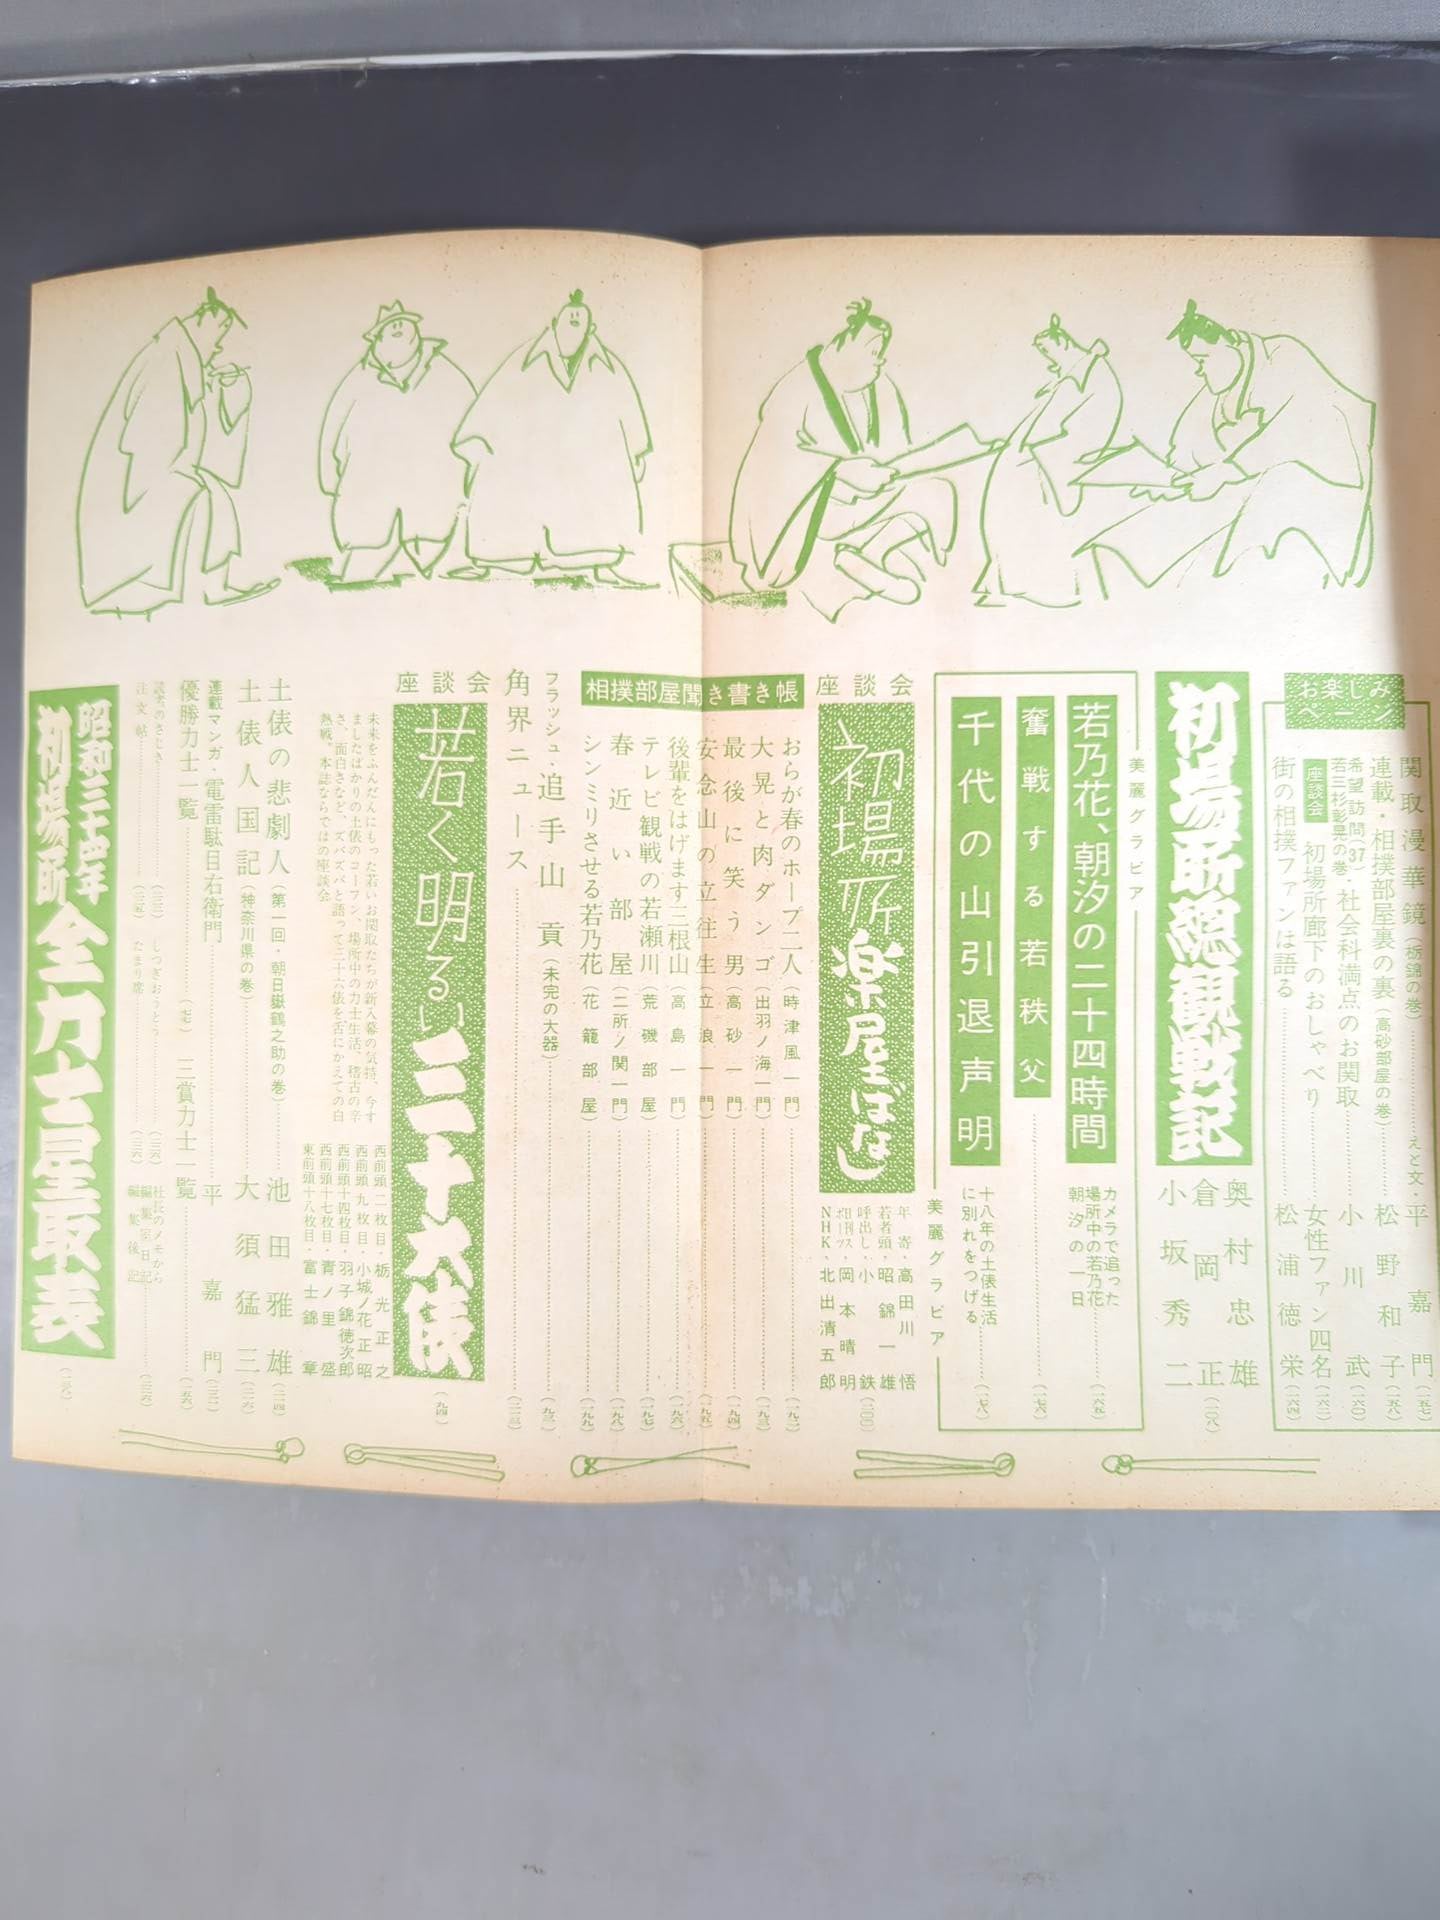 お楽しみ
ページ
関取漫華鏡(栃錦の巻)………えと文・平野嘉門(一五七)
連載・相撲部屋裏の裏(高砂部屋の巻)………松野和子(一五八)
希望訪問(37)・社会科満点のお関取………小川武(一六〇)
若三杉彰晃の巻
座談会 初場所廊下のおしゃべり………女性ファン四名(一六二)
街の相撲ファンは語る………松浦徳栄(一六四)
初場所総観戦記
奥村忠雄
倉岡正(一〇八)
小坂秀二
美麗グラビア
若乃花、朝汐の二十四時間
カメラで追った
場所中の若乃花
朝汐の一日………(一六五)
奮戦する若秩父………(一七六)
千代の山引退声明
十八年の土俵生活
に別れをつげる………(一七八)
美麗グラビア
座談会
初場所楽屋ばなし
年寄・高田川悟
若者頭・昭錦一雄
呼出し・小鉄(二〇〇)
日刊スポーツ・岡本晴明
NHK・北出清五郎
相撲部屋聞き書き帳
おらが春のホープ二人(時津風一門)………(一九二)
大晃と肉ダンゴ(出羽ノ海一門)………(一九三)
最後に笑う男(高砂一門)………(一九四)
安念山の立往生(立浪一門)………(一九五)
後輩をはげます三根山(高島一門)………(一九六)
テレビ観戦の若瀬川(荒磯部屋)………(一九七)
春近い部屋(二所ノ関一門)………(一九八)
シンミリさせる若乃花(花籠部屋)………(一九九)
フラッシュ・追手山貢(未完の大器)………(九三)
角界ニュース………(二二三)
座談会
若く明るい三十六俵(九四)
未来をふんだんにもった若いお関取たちが新入幕の気持、今す
ましたばかりの土俵のコーフン、場所中の力士生活、稽古の辛
さ、面白さなど、ズバズバと語って三十六俵を舌にかえての白
熱戦。本誌ならではの座談会
西前頭二枚目・栃光正之
西前頭九枚目・小城ノ花正昭
西前頭十四枚目・羽子錦徳次郎
西前頭十七枚目・青ノ里盛
東前頭十八枚目・富士錦章
土俵の悲劇人(第一回・朝日嶽鶴之助の巻)………池田雅雄(二一四)
土俵人国記(神奈川県の巻)………大須猛三(二一六)
連載マンガ・電雷駄目右衛門………平嘉門(二二一)
優勝力士一覧………(一七) 三賞力士一覧………(一五六)
読者のさじき………(二三二) しつぎおうとう………(二三六) 社長のメモから
編集室日記
注文帖………(二三五) たまり席………(二三六) 編集後記………(二三六)
昭和三十四年
初場所 全力士星取表(一六八)